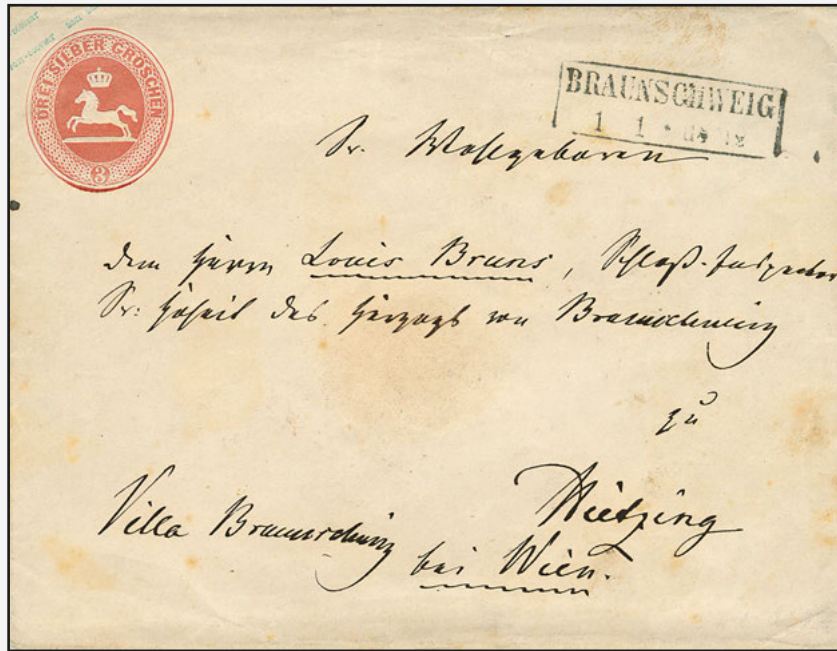 DREI SILBER GROSCHEN
3
BRAUNSCHWEIG
1 1
Sr. Wohlgeboren
dem Herrn Louis Bruns, Schloß-Inspector
Sr: Hoheit des Herzogs von Braunschweig
zu
Hietzing
Villa Braunschweig bei Wien.